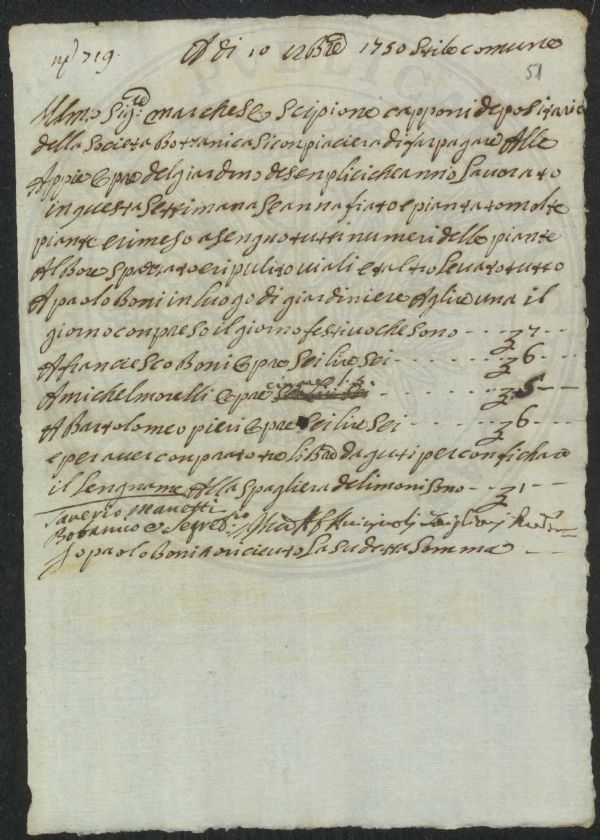 N° 719. A dì 10 xbre 1750 Stile comune
51
Illmo Sigre marchese Scipione capponi depositario
della Societa Bottanica Si conpiaciera di far pagare Alle
Appie Opre del giardino de senplici che anno lavorato
in questa Settimana Se annafiato e piantato molte
piante e rimeso a sengno tutti numeri delle piante
Al Bore spazato e ripulito viali e taltro levato tutto
A paolo Boni in luogo di giardiniere A glire una il
giorno conpreso il giorno festivo che sono - - - 7 - -
A franciesco Boni Opre Sei lire Sei - - - - - - 6 - -
A michel morelli Opre cinque l. 5. - - - - - - 5 - -
A Bartolomeo pieri Opre Sei lire Sei - - - - - 6 - -
e per aver conprato tre libre da guti per confichare
il lengname Alla Spagliera de limoni Sono - - 1 - -
Saverio Manetti
Botanico e Segretrio
Io paolo Boni ho riceuto La Su detta Somma - -